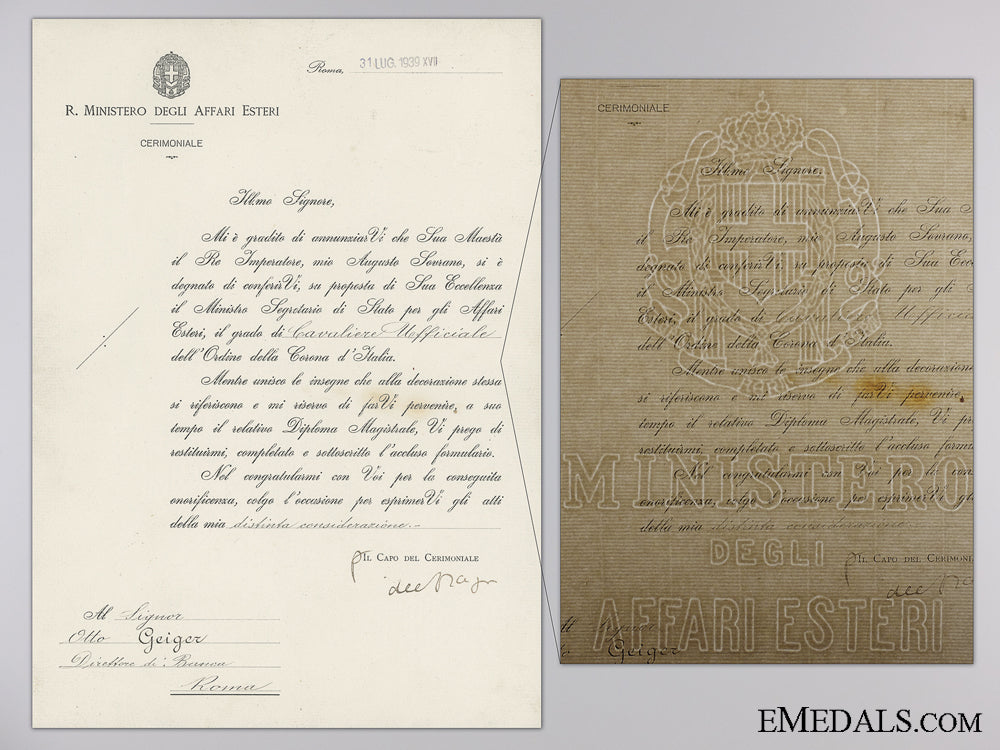 Roma, 31 LUG. 1939 XVII
R. MINISTERO DEGLI AFFARI ESTERI
CERIMONIALE
Ill.mo Signore,
Mi è gradito di annunziarVi che Sua Maestà
il Re Imperatore, mio Augusto Sovrano, si è
degnato di conferirVi, su proposta di Sua Eccellenza
il Ministro Segretario di Stato per gli Affari
Esteri, il grado di Cavaliere Ufficiale
dell'Ordine della Corona d'Italia.
Mentre unisco le insegne che alla decorazione stessa
si riferiscono e mi riservo di farVi pervenire, a suo
tempo il relativo Diploma Magistrale, Vi prego di
restituirmi, completato e sottoscritto l'accluso formulario.
Nel congratularmi con Voi per la conseguita
onorificenza, colgo l'occasione per esprimerVi gli atti
della mia distinta considerazione.-
IL CAPO DEL CERIMONIALE
Al Signor
Otto Geiger
Direttore di Banca
Roma
CERIMONIALE
Ill.mo Signore,
Mi è gradito di annunziarVi che Sua
il Re Imperatore, mio Augusto Sovrano,
degnato di conferirVi, su proposta di Sua Ecce
il Ministro Segretario di Stato per gli
Esteri, il grado di Cavaliere Uffici
dell'Ordine della Corona d'Italia.
Mentre unisco le insegne che alla decorazione
si riferiscono e mi riservo di farVi pervenire,
tempo il relativo Diploma Magistrale, Vi pr
restituirmi, completato e sottoscritto l'accluso formu
Nel congratularmi con Voi per la con
onorificenza, colgo l'occasione per esprimerVi g
della mia distinta considerazione
IL CAPO DEL CERIMONI
Al Signor
Geiger
MINISTERO
DEGLI
AFFARI ESTERI
EMEDALS.COM